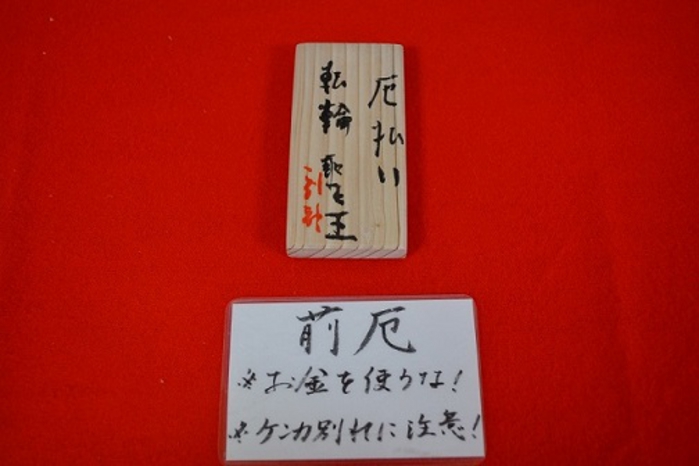 厄払い
転輪聖王
前厄
※お金を使うな!
※ケンカ別れに注意!